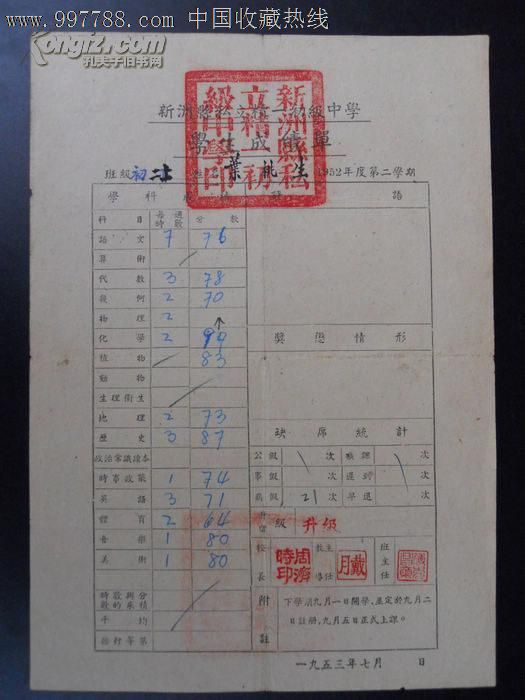 www.997788.com 中国收藏热线
孔夫子旧书网
新洲縣私立精一初級中學
新洲縣私立精一初級中學印
學生成績單
班級 初二上 姓名 葉桃生 1952年度第二學期
學科成績 評語
科目 每週時數 分數
語文 7 76
算術
代數 3 78
幾何 2 70
物理 2
化學 2 90
植物 83
動物
生理衛生
地理 2 73
歷史 3 87
政治常識讀本
時事政策 1 74
英語 3 71
體育 2 64
音樂 1 80
美術 1 80
時數與分數的乘積
平均
操行等第
獎懲情形
缺席統計
公假 次 曠課 次
事假 次 遲到 次
病假 21次 早退 次
升留級 升級
校長 周濟時印 教導主任 戴月 班主任
附註 下學期九月一日開學,並定於九月二日註冊,九月五日正式上課。
一九五三年七月 日